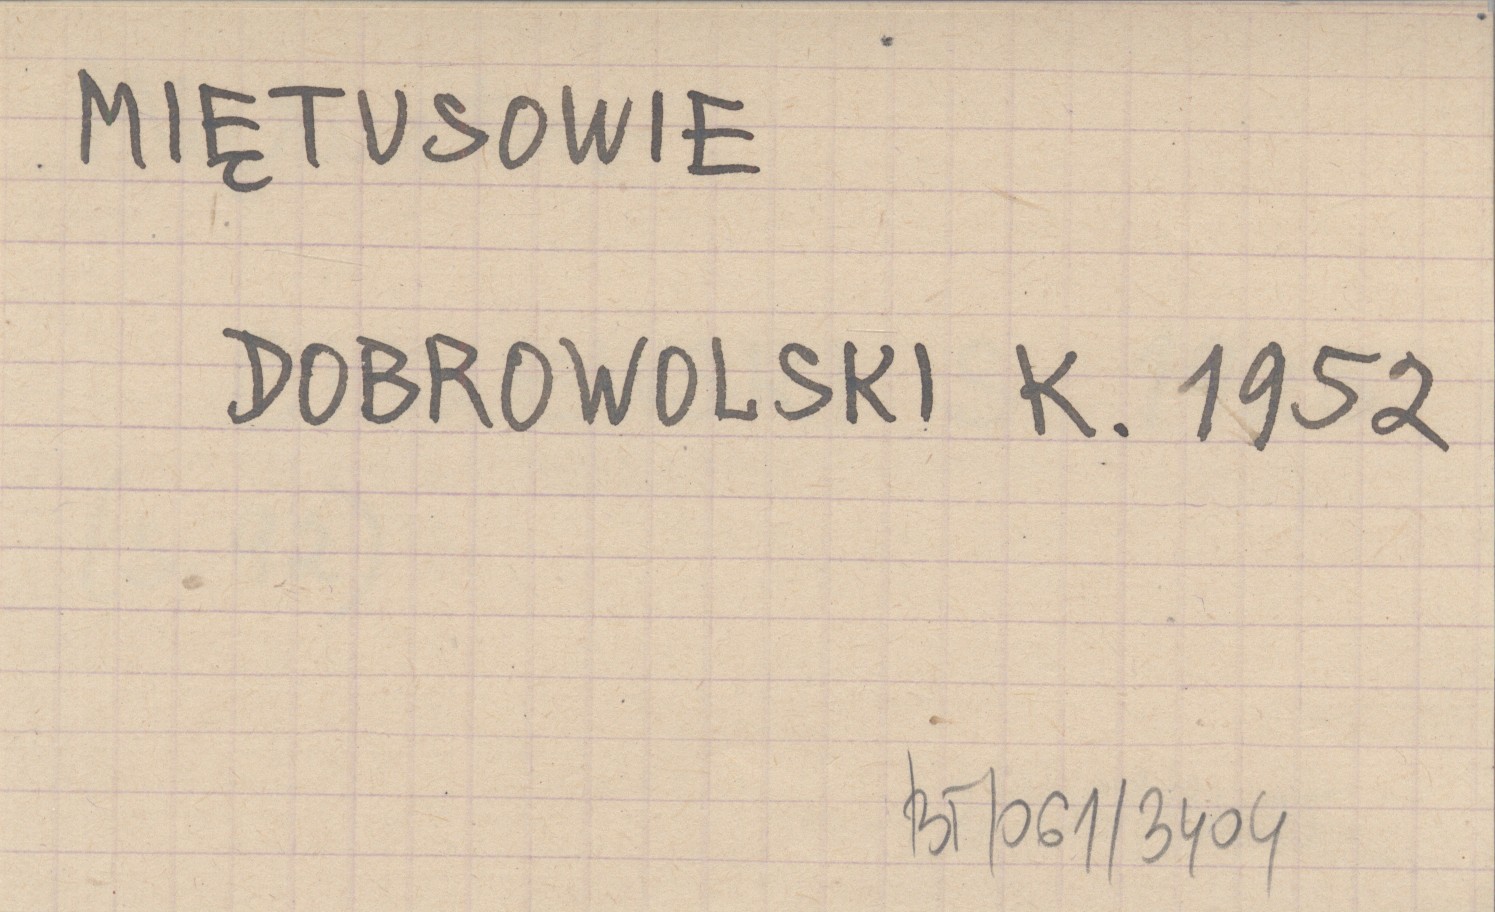 MIĘTUSOWIE
DOBROWOLSKI K. 1952
BT/061/3404